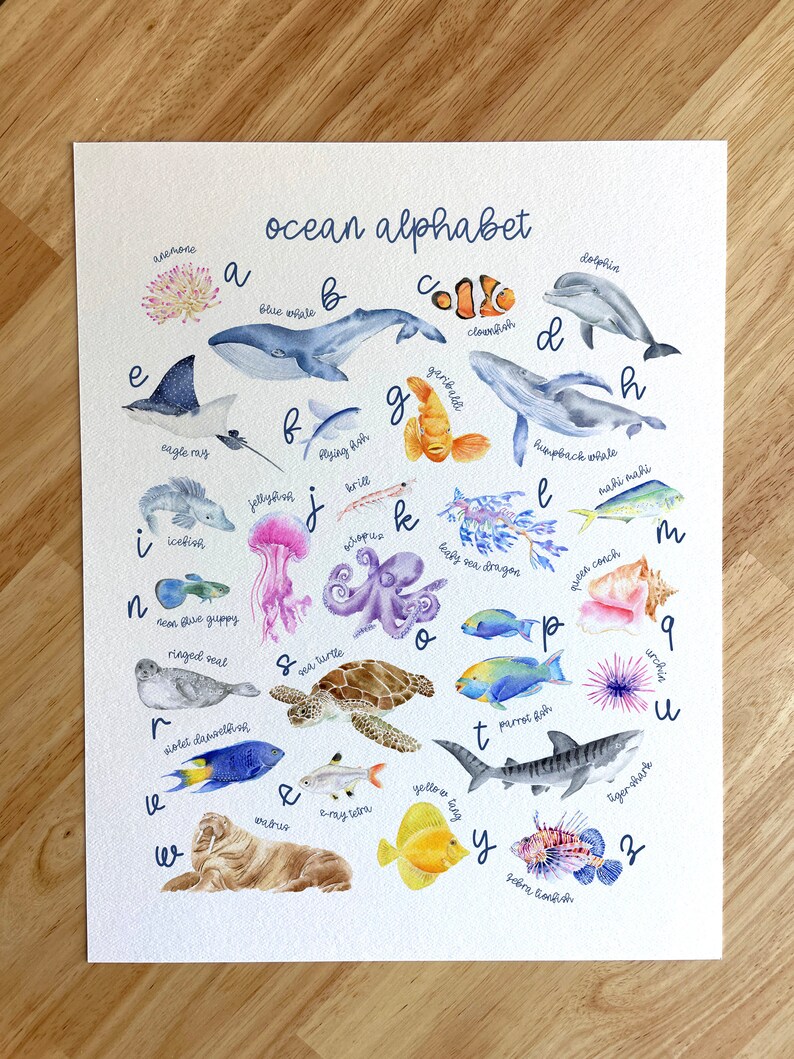 ocean alphabet
anemone
a
blue whale
b
c
clownfish
dolphin
d
e
eagle ray
f
flying fish
g
garibaldi
h
humpback whale
i
icefish
jellyfish
j
krill
k
l
leafy sea dragon
mahi mahi
m
n
neon blue guppy
octopus
o
p
parrot fish
queen conch
q
ringed seal
r
s
sea turtle
t
tiger shark
urchin
u
violet damselfish
v
x
x-ray tetra
w
walrus
yellow tang
y
z
zebra lionfish